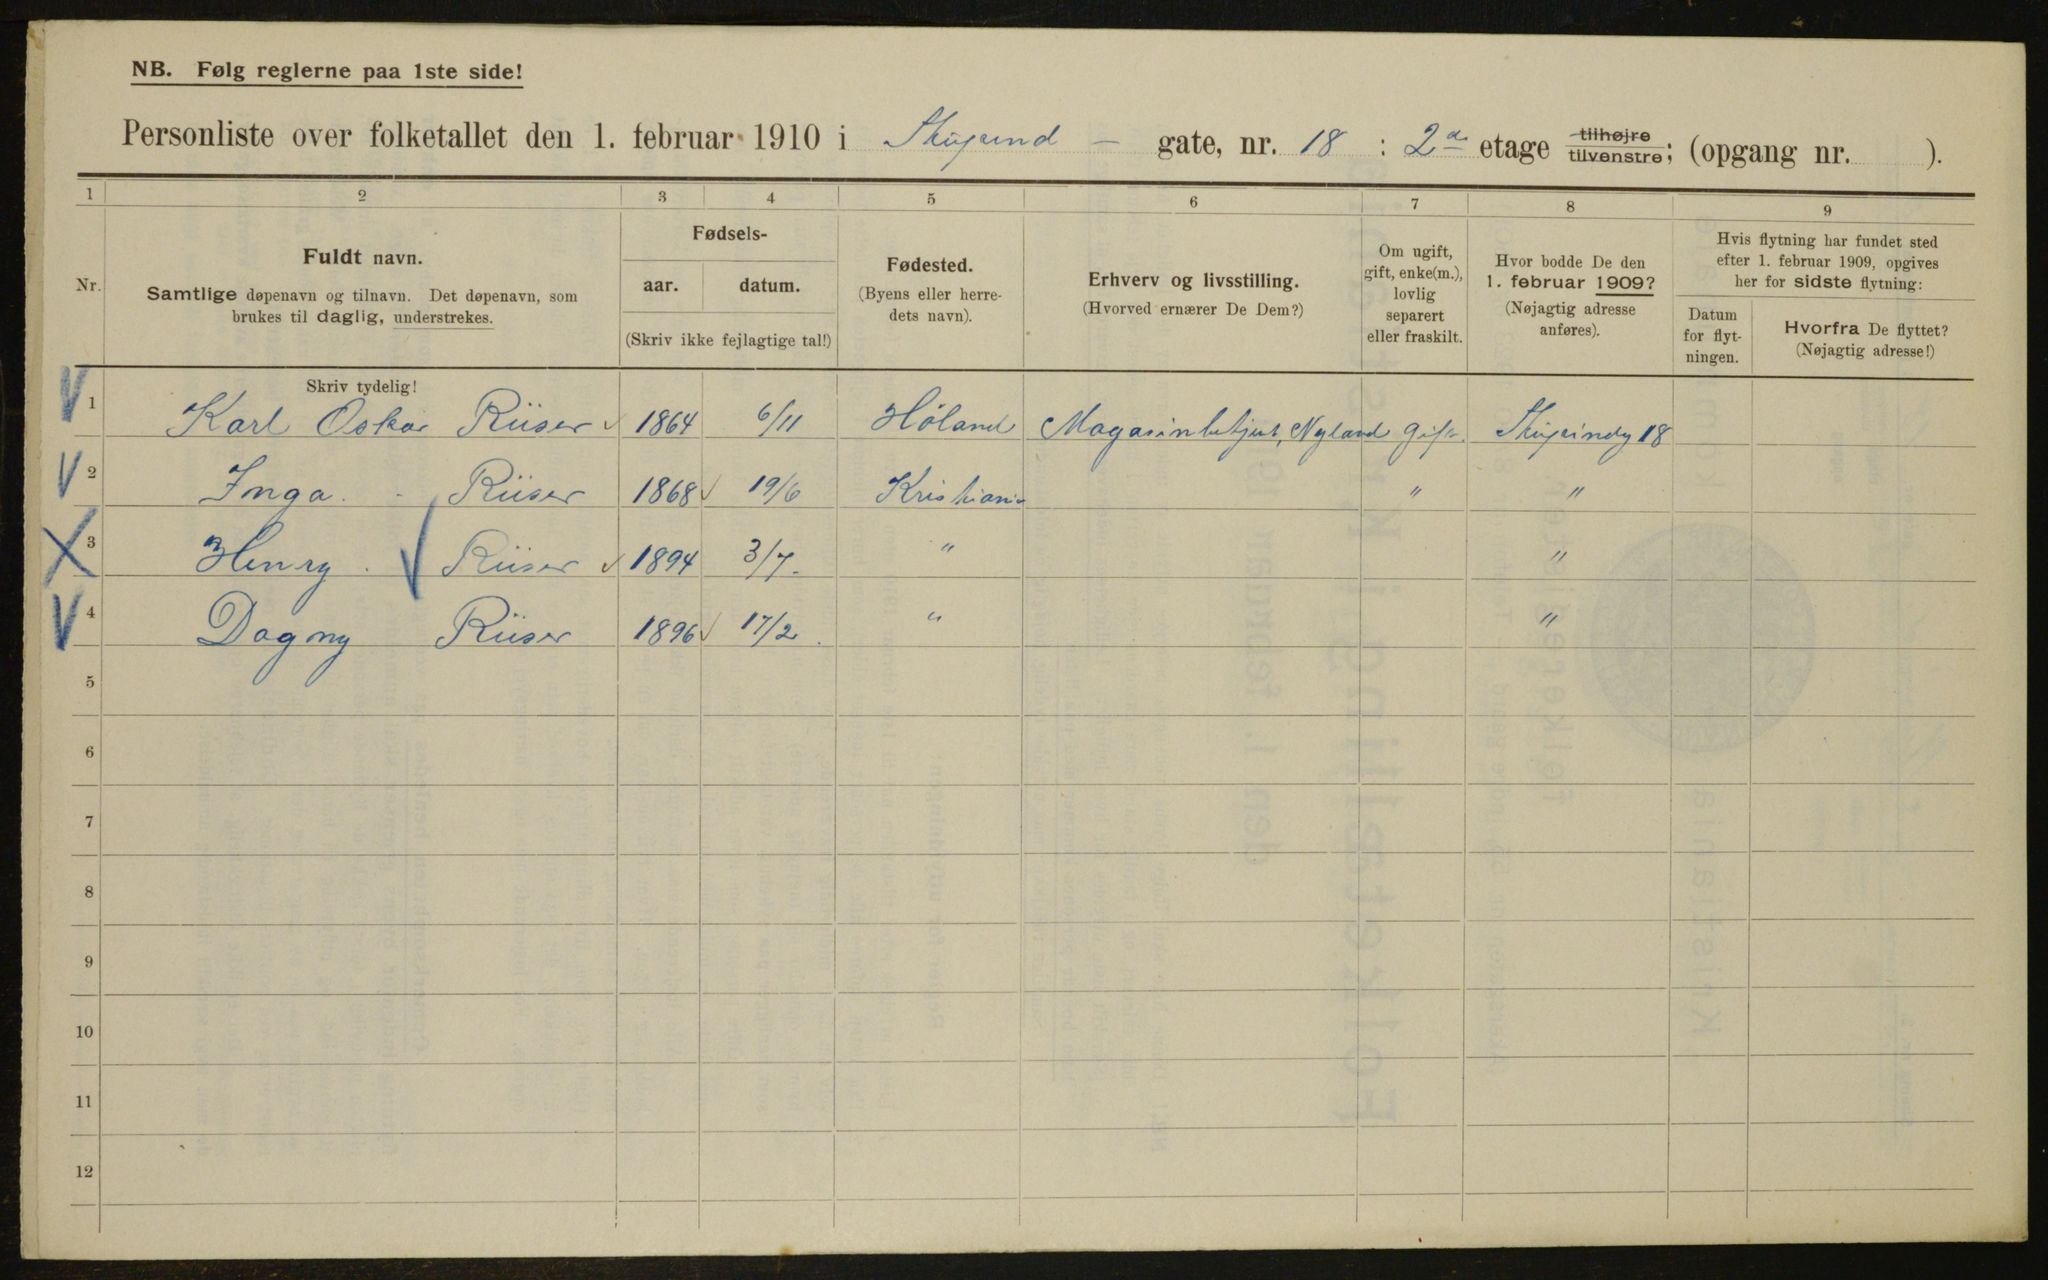 NB. Følg reglerne paa 1ste side!
Personliste over folketallet den 1. februar 1910 i gate, nr. 18 : 2 etage tilhøjre tilvenstre; (opgang nr. ).
1 2 3 4 5 6 7 8 9
Nr.
Fuldt navn.
Samtlige døpenavn og tilnavn. Det døpenavn, som
brukes til daglig, understrekes.
Fødsels-
aar. datum.
(Skriv ikke fejlagtige tal!)
Fødested.
(Byens eller herre-
dets navn).
Erhverv og livsstilling.
(Hvorved ernærer De Dem?)
Om ugift,
gift, enke(m.),
lovlig
separert
eller fraskilt.
Hvor bodde De den
1. februar 1909?
(Nøjagtig adresse
anføres).
Hvis flytning har fundet sted
efter 1. februar 1909, opgives
her for sidste flytning:
Datum
for flyt-
ningen.
Hvorfra De flyttet?
(Nøjagtig adresse!)
Skriv tydelig!
1 Karl Oskar Riiser 1864 6/11 Høland Nyland Gift 18
2 Inga Riiser 1868 19/6 Kristiania " "
3 Henry Riiser 1894 3/7 " "
4 Dagny Riiser 1896 17/2 " "
5
6
7
8
9
10
11
12